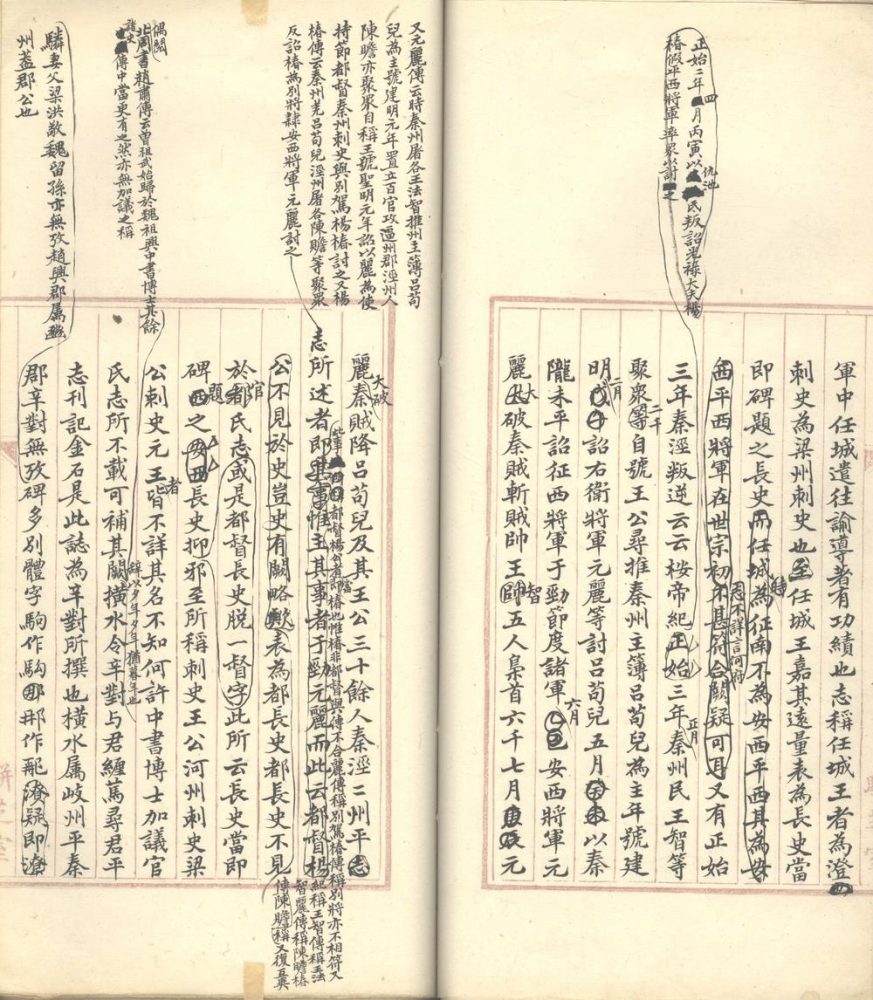 正始二年四月丙寅以仇池氐叛詔光祿大夫楊
椿假平西將軍率眾以討之
軍中任城遣往諭導著有功績也志稱任城王者為澄
刺史為梁州刺史也至任城王嘉其遠量表為長史當
即碑題之長史而任城時為征南不為安西平西其為安
西平西將軍在世宗初不甚符合闕疑可耳又有正始
志不詳言何府
三年秦涇叛逆云云桉帝紀正始三年正月秦州民王智等
聚眾二千自號王公尋推秦州主簿呂苟兒為主年號建
明二月詔右衛將軍元麗等討呂苟兒五月以秦
隴未平詔征西將軍于勁節度諸軍六月安西將軍元
麗大破秦賊斬賊帥王智五人梟首六千七月元
又元麗傳云時秦州屠各王法智推州主簿呂苟
兒為主號建明元年置立百官攻逼州郡涇州人
陳瞻亦聚眾自稱王號聖明元年詔以麗為使
持節都督秦州刺史與別駕楊椿討之又楊
椿傳云秦州羌呂苟兒涇州屠各陳瞻等聚眾
反詔椿為別將隸安西將軍元麗討之
偶閱
北周書趙肅傳云曾祖武始歸於魏祖興中書博士其餘
諸史傳中當更有之然亦無加議之稱
驎妻父梁洪敬魏留孫亦無攷趙興郡屬豳
州蓋郡公也
麗大破秦賊降呂苟兒及其王公三十餘人秦涇二州平志
志所述者即其事惟主其事者于勁元麗而此云都督楊
都督楊公者即椿也惟椿非都督與傳不合麗傳稱別駕椿傳稱別將亦不相符又
紀稱王智傳稱王法
智麗傳稱陳瞻椿
傳陳瞻稱又復互異
公不見於史豈史有闕略歟表為都長史都長史不見
於官氏志或是都督長史脫一督字此所云長史當即
碑題之安西長史抑邪至所稱刺史王公河州刺史梁
公刺史元王者皆不詳其名不知何許中書博士加議官
氏志所不載可補其闕橫水令辛對与君纏篤尋君平
辭以夕年夕年猶暮年也
志刊記金石是此誌為辛對所撰也橫水屬岐州平秦
郡辛對無攷碑多別體字駒作䮍那邢作𨚗濬疑即濬